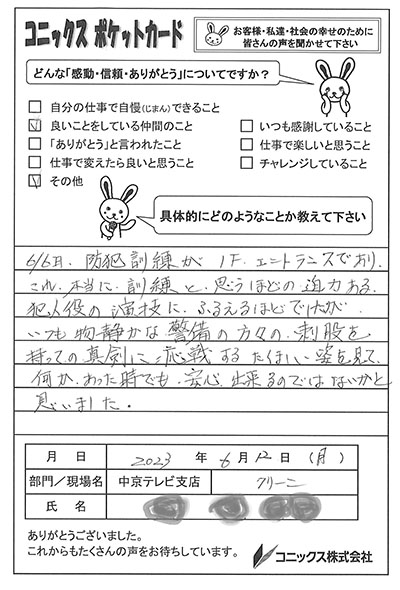 コニックス ポケットカード
お客様・私達・社会の幸せのために
皆さんの声を聞かせて下さい
どんな「感動・信頼・ありがとう」についてですか？
自分の仕事で自慢(じまん)できること
良いことをしている仲間のこと
いつも感謝していること
「ありがとう」と言われたこと
仕事で楽しいと思うこと
仕事で変えたら良いと思うこと
チャレンジしていること
その他
具体的にどのようなことか教えて下さい
防犯訓練が 1F エントランスであり、
これ、本当に、訓練と、思うほどの迫力ある、
犯人役の演技に、ふるえるほどでしたが、
いつも物静かな、警備の方々の、刺股を
持っての真剣に応戦するたくましい姿を見て、
何か、あった時でも、安心、出来るのではないかと
思いました。
月 日
2023 年 6 月 12 日 (月)
部門／現場名
中京テレビ支店
クリーン
氏 名
ありがとうございました。
これからもたくさんの声をお待ちしています。
コニックス株式会社